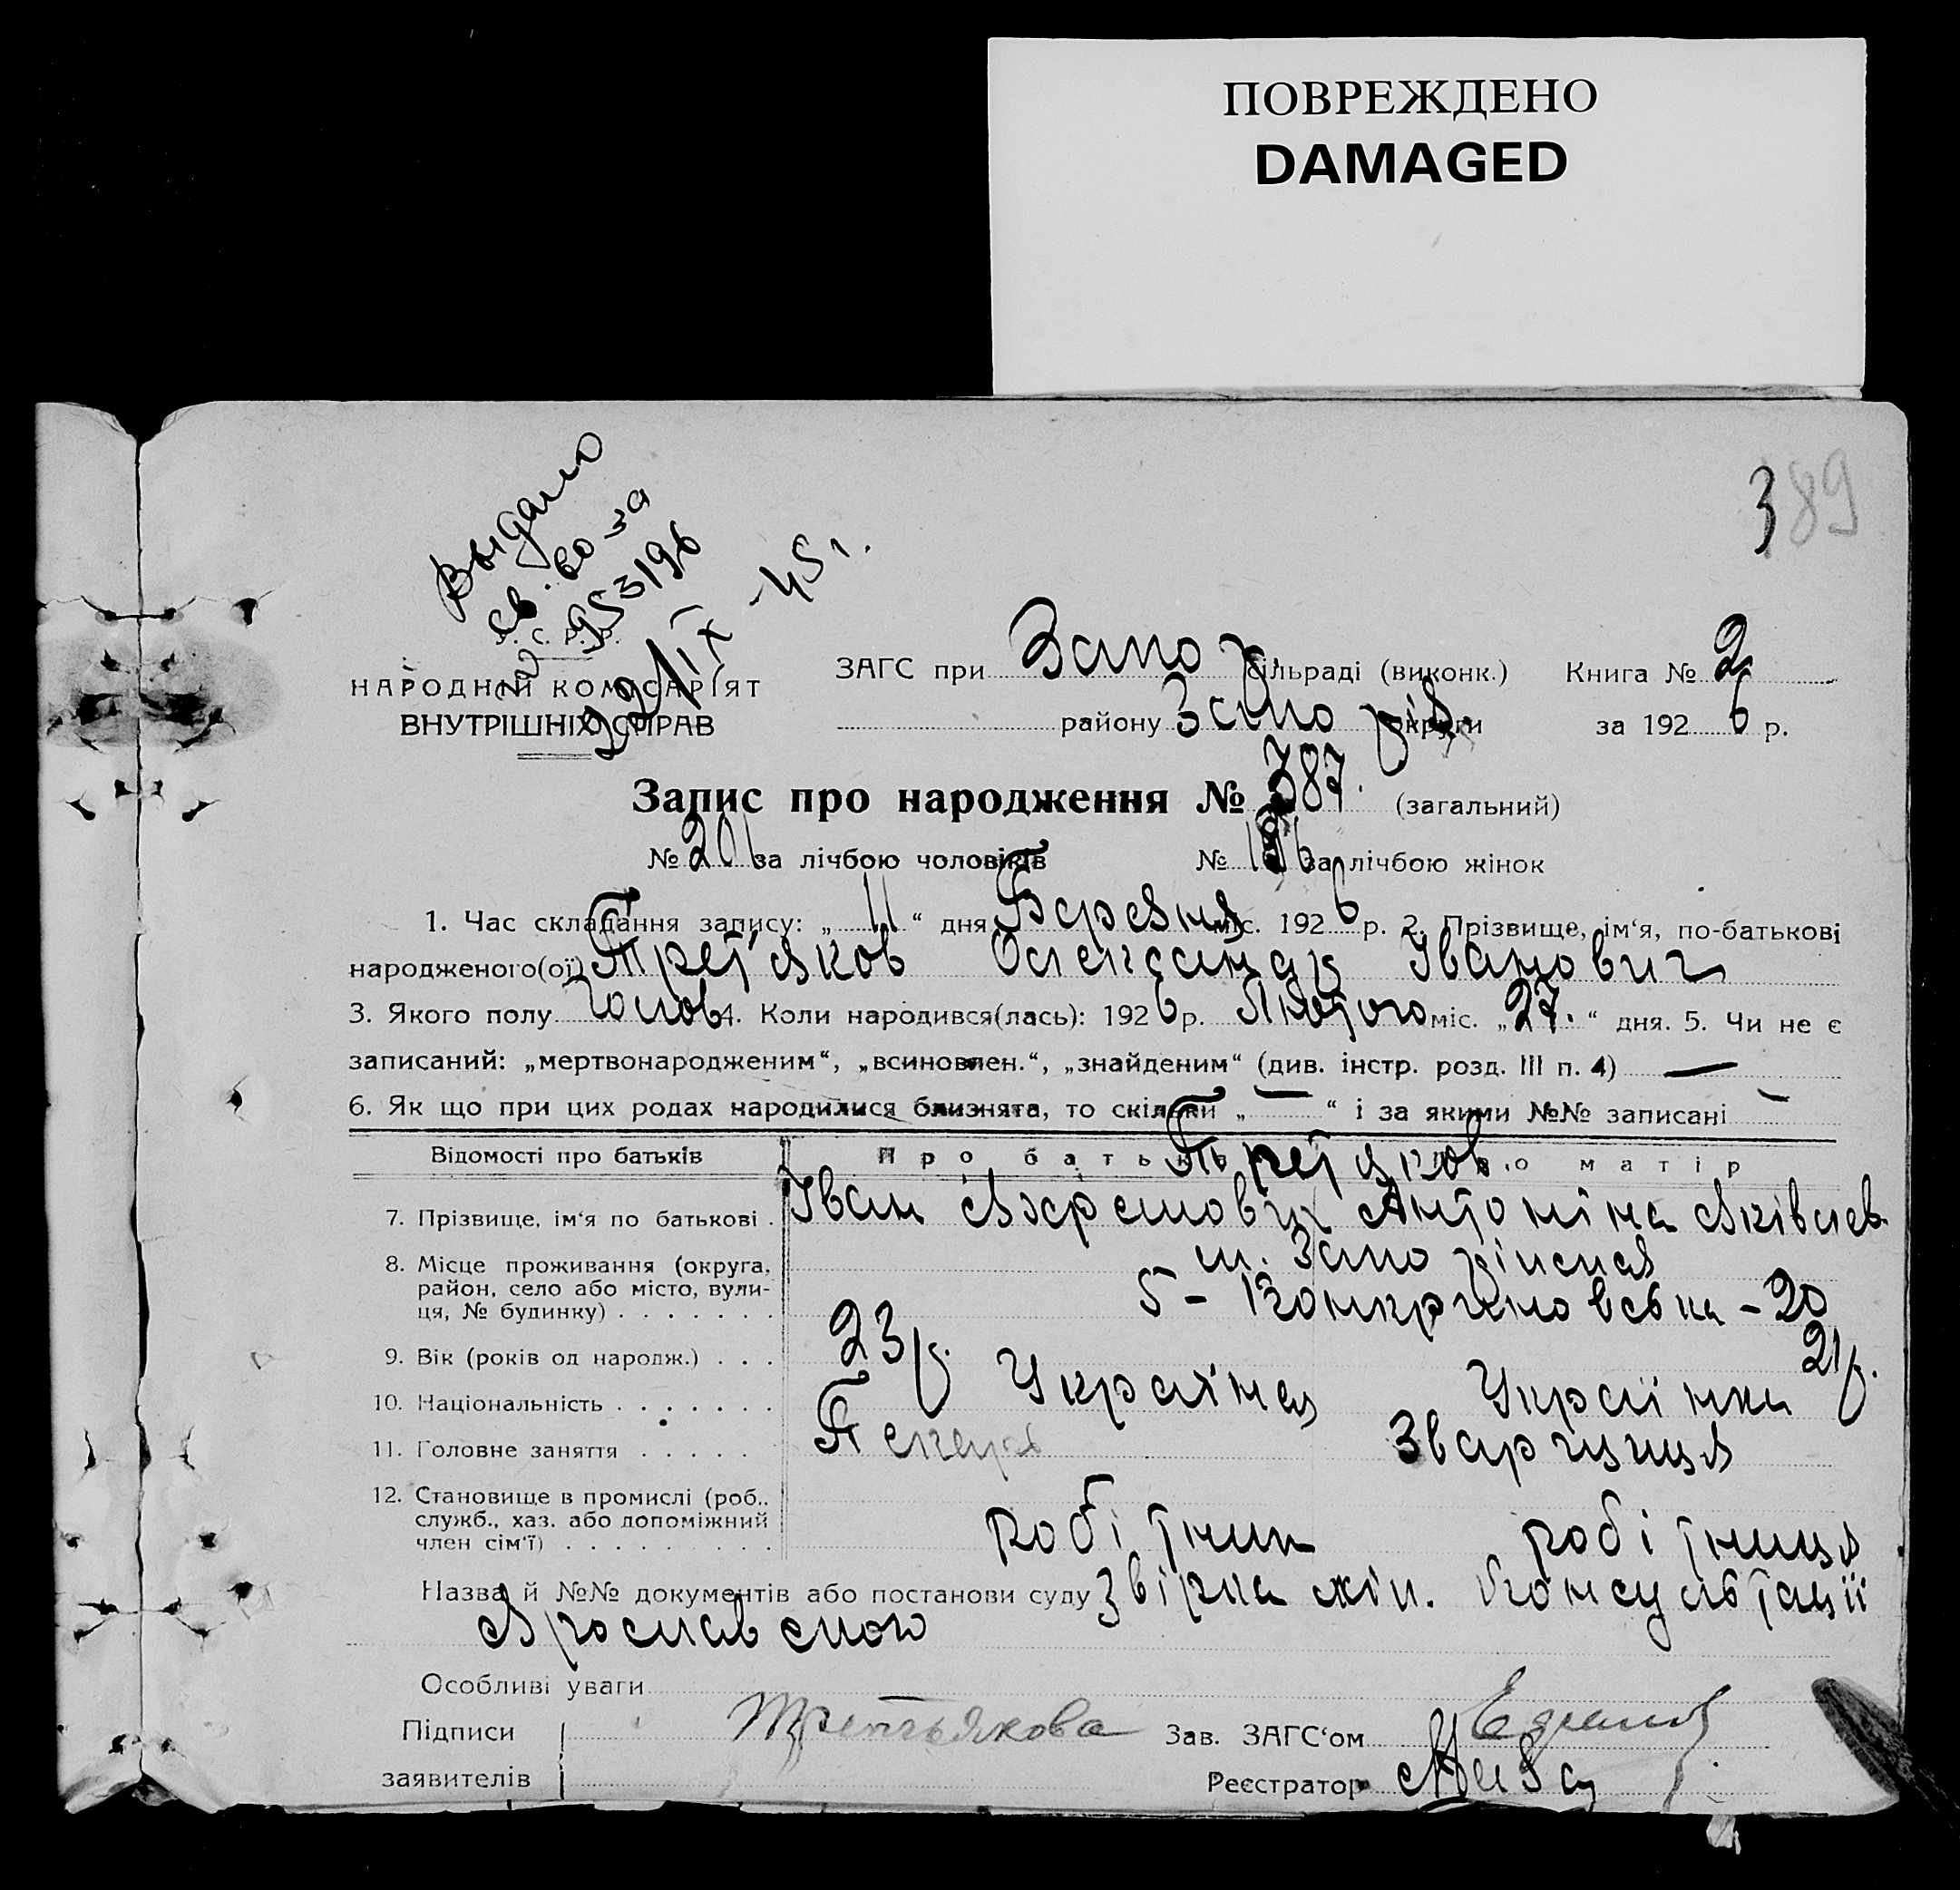 ПОВРЕЖДЕНО
DAMAGED
389
Выдано
св. во за
№ 953196
29/IX -45 г.
У. С. Р. Р.
НАРОДНІЙ КОМІСАРІЯТ
ВНУТРІШНІХ СПРАВ
ЗАГС при Запор. сільраді (виконк.) Книга № 2
району Запоріз. округи за 1926 р.
Запис про народження № 387. (загальний)
№ 201 за лічбою чоловіків № 186 за лічбою жінок
1. Час складання запису: „ 11 “ дня Березня міс. 1926 р. 2. Прізвище, ім‘я, по-батькові
народженого(ої) Трет'яков Олександр Іванович
3. Якого полу чолов 4. Коли народився(лась): 1926 р. Лютого міс. „ 27. “ дня. 5. Чи не є
записаний: „мертвонародженим“, „всиновлен.“, „знайденим“ (див. інстр. розд. III п. 4) —
6. Як що при цих родах народилися близнята, то скільки „ — “ і за якими №№ записані —
Відомості про батьків Про батька Про матір
Трет'яков.
7. Прізвище, ім‘я по батькові . Іван Антоніна Яківлев.
8. Місце проживання (округа, м. Запоріжжя
район, село або місто, вули-
ця, № будинку) . . . . . . . 5 – – 20
9. Вік (років од народж.) . . . 23 р. 21 р.
10. Національність . . . . . . . Українец Українка
11. Головне заняття . . . . . Пекарь
12. Становище в промислі (роб.,
служб., хаз. або допоміжний
член сім‘ї) . . . . . . . . . робітник робітниця
Назва й №№ документів або постанови суду жін. Консультації
Особливі уваги
Підписи Третьякова Зав. ЗАГС‘ом
заявителів Реєстратор